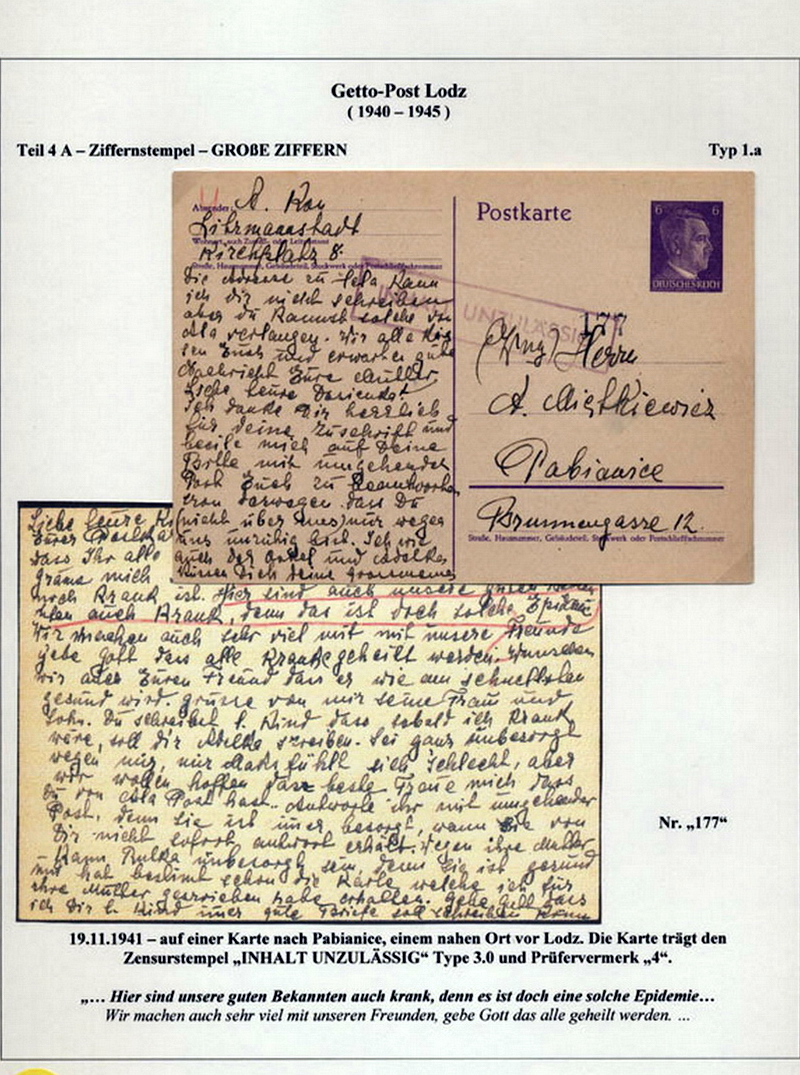 Getto-Post Lodz
( 1940 – 1945 )
Teil 4 A – Ziffernstempel – GROßE ZIFFERN
Typ 1.a
Absender: A. Kon
Litzmannstadt
Wohnort, auch Zustell- oder Leitpostamt
Kirchplatz 8.
Straße, Hausnummer, Gebäudeteil, Stockwerk oder Postschließfachnummer
Die Adresse zu Jela Kann
ich dir nicht schreiben
aber du Kannst solche von
verlangen. Wir alle
sen Euch und erwarten gute
Nachricht Eure Mutter
Liebe teure
Ich danke Dir herzlich
für deine Zuschrift und
beeile mich auf Deine
Bitte mit umgehender
Post Euch zu Beantworten
dass Du
(nicht über uns) nur wegen
uns unruhig bist. Ich wie
auch der Onkel und
Küssen Dich Deine
Postkarte
6 6
DEUTSCHES REICH
UNZULÄSSIG
Herrn
A. Mietkiewicz
Pabianice
Brunnengasse 12.
Straße, Hausnummer, Gebäudeteil, Stockwerk oder Postschließfachnummer
Liebe teure
dass Ihr alle
mich
noch Krank ist. Hier sind auch unsere guten
auch Krank, denn das ist doch solche
Wir machen auch sehr viel mit mit unsere Freunde
gebe Gott dass alle Kranke geheilt werden. Wünschen
wir aber Euren Freund dass er wie am schnellsten
gesund wird. grüsse von mir seine Frau und
Sohn. Du schreibst l. Kind dass sobald ich Krank
wäre, soll dir schreiben. Sei ganz unbesorgt
wegen mir, nur fühlt sich schlecht, aber
wir wollen hoffen das beste Freue mich dass
Du von Post hast. Antworte ihr mit umgehender
Post, denn sie ist imer besorgt, wann sie von
Dir nicht sofort antwort erhält. Wegen ihre Mutter
Kann unbesorgt sein, denn sie ist gesund
und hat bestimt schon die Karte welche ich für
ihre Mutter geschrieben habe erhalten. gebe Gott dass
ich Dir l. Kind imer gute Briefe soll schreiben
Nr. „177“
19.11.1941 – auf einer Karte nach Pabianice, einem nahen Ort vor Lodz. Die Karte trägt den
Zensurstempel „INHALT UNZULÄSSIG“ Type 3.0 und Prüfervermerk „4“.
„… Hier sind unsere guten Bekannten auch krank, denn es ist doch eine solche Epidemie…
Wir machen auch sehr viel mit unseren Freunden, gebe Gott das alle geheilt werden. …